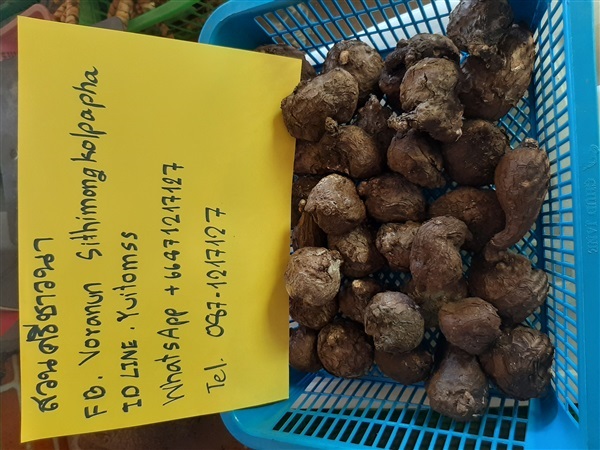 สวนศรีชาวนา
FB. Voranun Sithimongkolpapha
ID LINE. Yuitomss
WhatsApp +66471217127
Tel. 087-1217127